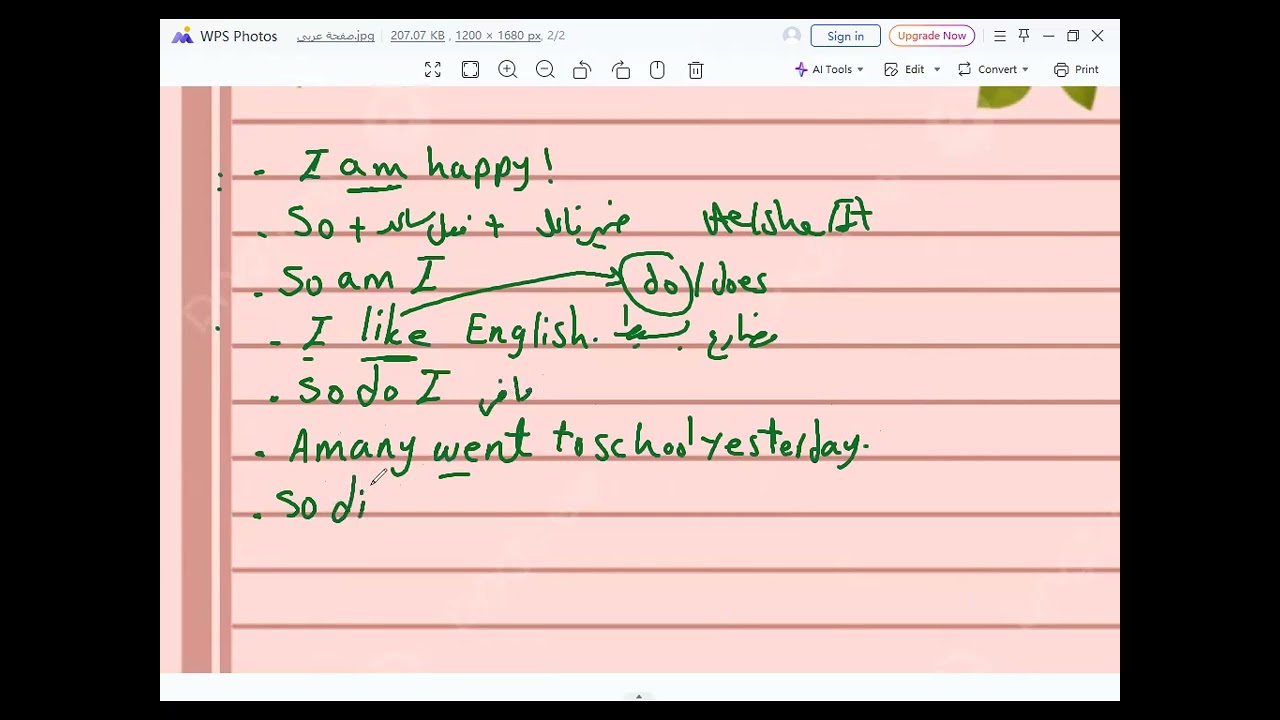 WPS Photos صفحة عربي.jpg 207.07 KB , 1200 × 1680 px, 2/2 Sign in Upgrade Now
AI Tools Edit Convert Print
- I am happy!
. So + فعل مساعد + ضمير فاعل He/she/It
. So am I do / does
- I like English. مضارع بسيط
. So do I ماضي
. Amany went to school yesterday.
. So di